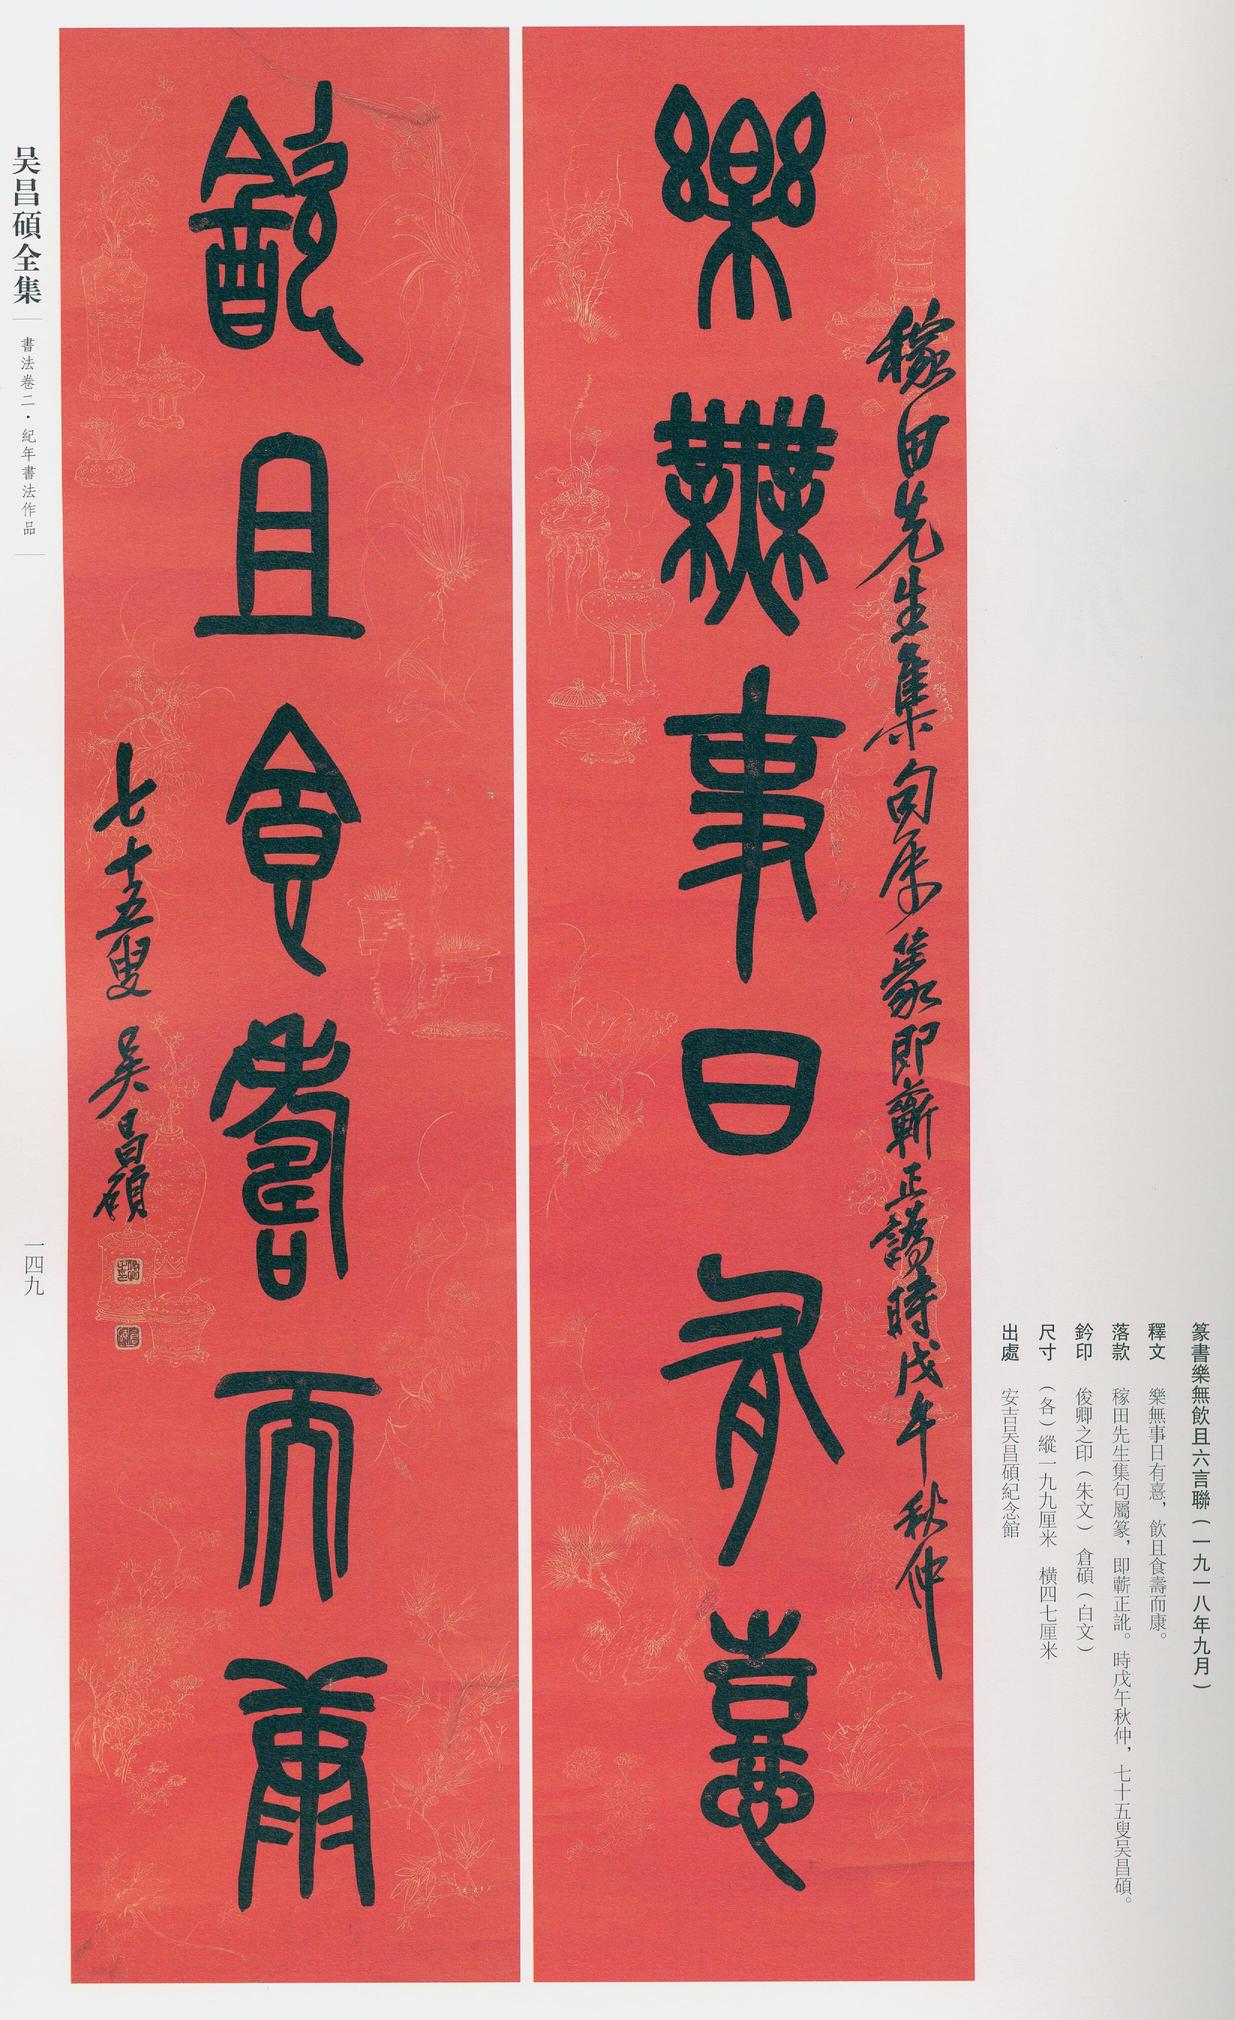 篆書樂無飲且六言聯(一九一八年九月)
釋文　樂無事日有憙，飲且食壽而康。
落款　稼田先生集句屬篆，即蘄正訛。時戊午秋仲，七十五叟吴昌碩。
鈐印　俊卿之印(朱文)　倉碩(白文)
尺寸　(各)縱一九九厘米　橫四七厘米
出處　安吉吴昌碩紀念館
稼田先生集句属篆即蘄正譌時戊午秋仲
樂無事日有憙
飲且食壽而康
七十五叟吴昌碩
俊卿之印
倉碩
吴昌碩全集
書法卷二·紀年書法作品
一四九